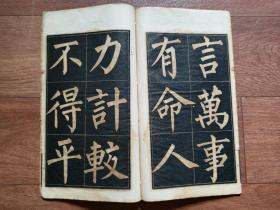 言萬事
有命人
力計較
不得平